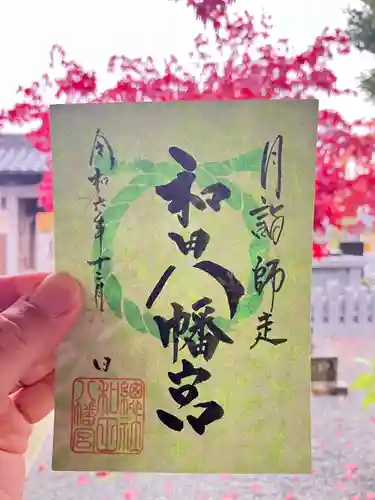 月詣 師走
和田八幡宮
令和六年十二月 日
總社
和田
八幡宮